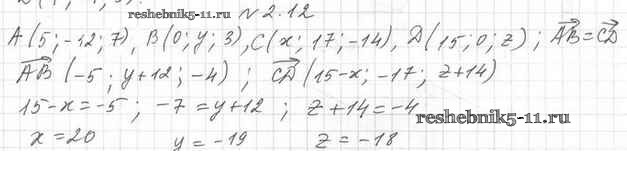 reshebnik5-11.ru
№2.12
A(5;-12;7), B(0;y;3), C(x;17;-14), D(15;0;z); AB=CD
AB(-5; y+12; -4); CD(15-x; -17; z+14)
15-x=-5; -7=y+12; z+14=-4
reshebnik5-11.ru
x=20 y=-19 z=-18